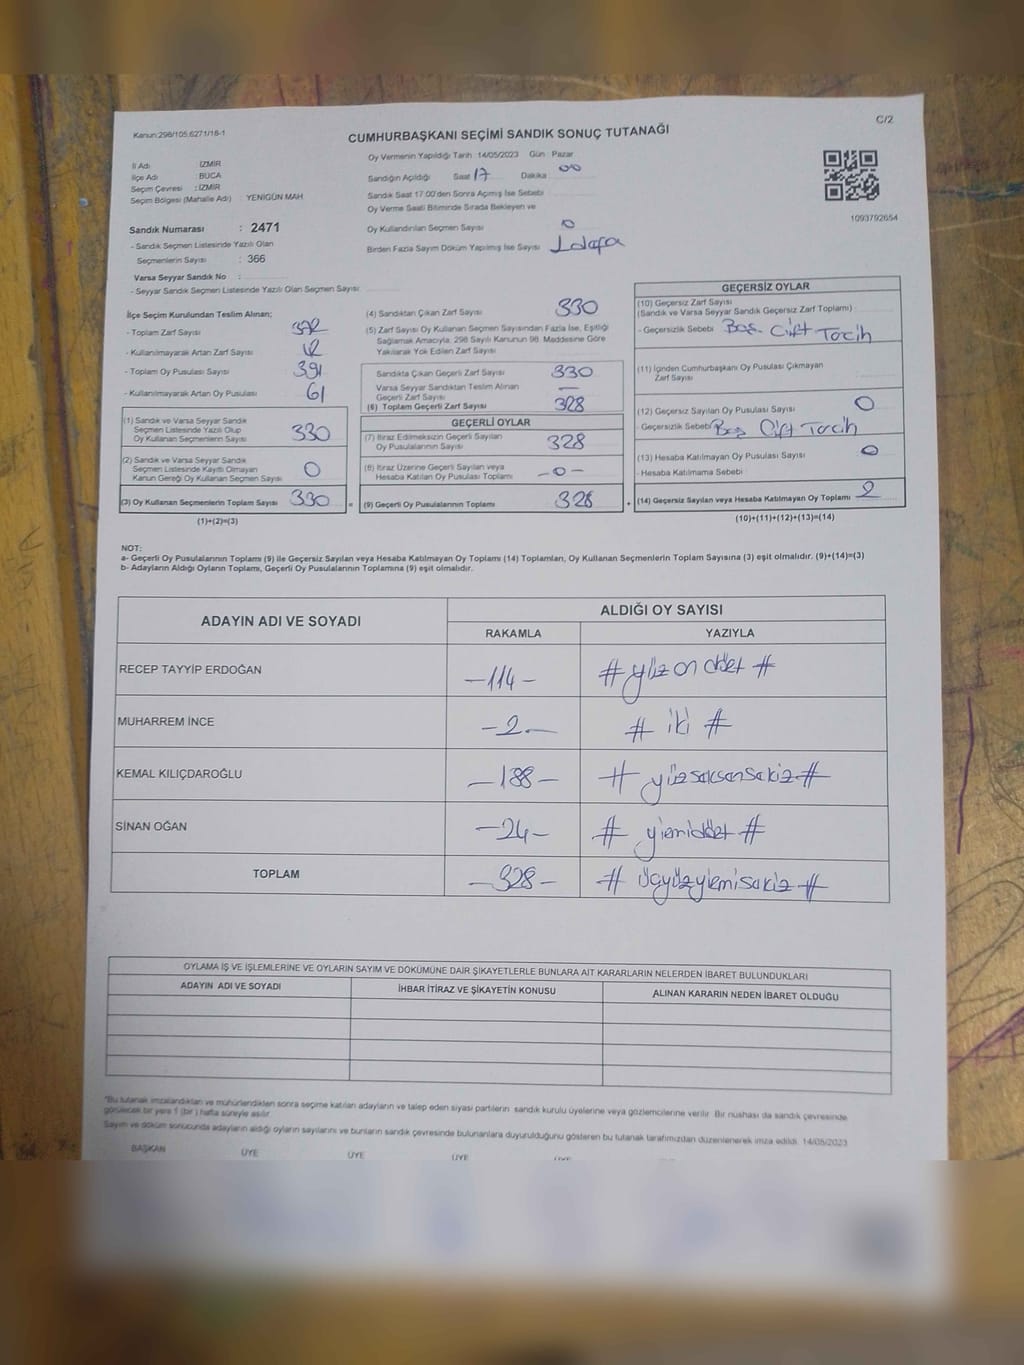 C/2
Kanun:298/105,6271/18-1
CUMHURBAŞKANI SEÇİMİ SANDIK SONUÇ TUTANAĞI
İl Adı : İZMİR
İlçe Adı : BUCA
Seçim Çevresi : İZMİR
Seçim Bölgesi (Mahalle Adı) : YENİGÜN MAH
Sandık Numarası : 2471
- Sandık Seçmen Listesinde Yazılı Olan
Seçmenlerin Sayısı : 366
Varsa Seyyar Sandık No :
- Seyyar Sandık Seçmen Listesinde Yazılı Olan Seçmen Sayısı:
Oy Vermenin Yapıldığı Tarih 14/05/2023 Gün Pazar
Sandığın Açıldığı Saat 17 Dakika 00
Sandık Saat 17:00'den Sonra Açımış İse Sebebi
Oy Verme Saati Bitiminde Sırada Bekleyen ve
Oy Kullandırılan Seçmen Sayısı 0
Birden Fazla Sayım Döküm Yapılmış İse Sayısı 1 defa
1093792654
İlçe Seçim Kurulundan Teslim Alınan;
- Toplam Zarf Sayısı
- Kullanılmayarak Artan Zarf Sayısı
- Toplam Oy Pusulası Sayısı 391
- Kullanılmayarak Artan Oy Pusulası 61
(1) Sandık ve Varsa Seyyar Sandık
Seçmen Listesinde Yazılı Olup
Oy Kullanan Seçmenlerin Sayısı 330
(2) Sandık ve Varsa Seyyar Sandık
Seçmen Listesinde Kayıtlı Olmayan
Kanun Gereği Oy Kullanan Seçmen Sayısı 0
(3) Oy Kullanan Seçmenlerin Toplam Sayısı 330
(1)+(2)=(3)
(4) Sandıktan Çıkan Zarf Sayısı 330
(5) Zarf Sayısı Oy Kullanan Seçmen Sayısından Fazla İse, Eşitliği
Sağlamak Amacıyla, 298 Sayılı Kanunun 98. Maddesine Göre
Yakılarak Yok Edilen Zarf Sayısı
Sandıkta Çıkan Geçerli Zarf Sayısı 330
Varsa Seyyar Sandıktan Teslim Alınan
Geçerli Zarf Sayısı —
(6) Toplam Geçerli Zarf Sayısı 328
GEÇERLİ OYLAR
(7) İtiraz Edilmeksizin Geçerli Sayılan
Oy Pusulalarının Sayısı 328
(8) İtiraz Üzerine Geçerli Sayılan veya
Hesaba Katılan Oy Pusulası Toplamı -0-
= (9) Geçerli Oy Pusulalarının Toplamı 328 +
GEÇERSİZ OYLAR
(10) Geçersiz Zarf Sayısı
(Sandık ve Varsa Seyyar Sandık Geçersiz Zarf Toplamı) :
- Geçersizlik Sebebi Boş Çift Tercih
(11) İçinden Cumhurbaşkanı Oy Pusulası Çıkmayan
Zarf Sayısı
(12) Geçersiz Sayılan Oy Pusulası Sayısı 0
- Geçersizlik Sebebi Boş Çift Tercih
(13) Hesaba Katılmayan Oy Pusulası Sayısı 0
- Hesaba Katılmama Sebebi
(14) Geçersiz Sayılan veya Hesaba Katılmayan Oy Toplamı 2
(10)+(11)+(12)+(13)=(14)
NOT:
a- Geçerli Oy Pusulalarının Toplamı (9) ile Geçersiz Sayılan veya Hesaba Katılmayan Oy Toplamı (14) Toplamları, Oy Kullanan Seçmenlerin Toplam Sayısına (3) eşit olmalıdır. (9)+(14)=(3)
b- Adayların Aldığı Oyların Toplamı, Geçerli Oy Pusulalarının Toplamına (9) eşit olmalıdır.
ADAYIN ADI VE SOYADI ALDIĞI OY SAYISI
RAKAMLA YAZIYLA
RECEP TAYYİP ERDOĞAN -114- # yüz on dört #
MUHARREM İNCE -2- # iki #
KEMAL KILIÇDAROĞLU -188- # yüzseksensekiz #
SİNAN OĞAN -24- # yirmidört #
TOPLAM -328- # üçyüzyirmisekiz #
OYLAMA İŞ VE İŞLEMLERİNE VE OYLARIN SAYIM VE DÖKÜMÜNE DAİR ŞİKAYETLERLE BUNLARA AİT KARARLARIN NELERDEN İBARET BULUNDUKLARI
ADAYIN ADI VE SOYADI İHBAR İTİRAZ VE ŞİKAYETİN KONUSU ALINAN KARARIN NEDEN İBARET OLDUĞU
*Bu tutanak imzalandıktan ve mühürlendikten sonra seçime katılan adayların ve talep eden siyasi partilerin sandık kurulu üyelerine veya gözlemcilerine verilir. Bir nüshası da sandık çevresinde
görülecek bir yere 1 (bir) hafta süreyle asılır.
Sayım ve döküm sonucunda adayların aldığı oyların sayılarını ve bunların sandık çevresinde bulunanlara duyurulduğunu gösteren bu tutanak tarafımızdan düzenlenerek imza edildi. 14/05/2023
BAŞKAN ÜYE ÜYE ÜYE